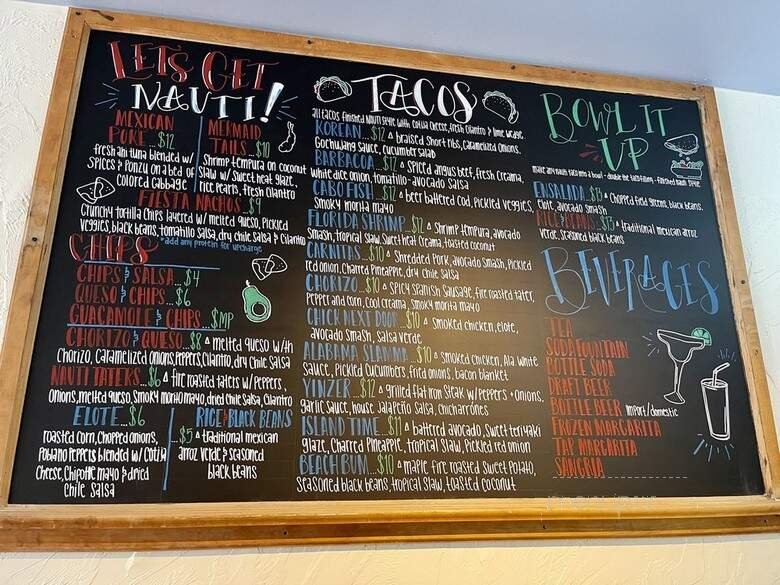 LETS GET
NAUTI!
MEXICAN
POKE...$12
fresh ahi tuna blended w/
spices & ponzu on a bed of
colored cabbage
MERMAID
TAILS...$10
Shrimp tempura on coconut
slaw w/ sweet heat glaze,
rice pearls, fresh cilantro
FIESTA NACHOS...$9
Crunchy tortilla chips layered w/ melted queso, pickled
veggies, black beans, tomatillo salsa, dry chile salsa & cilantro
*add any protein for upcharge
CHIPS
CHIPS & SALSA...$4
QUESO & CHIPS...$6
GUACAMOLE & CHIPS...$MP
CHORIZO & QUESO...$8 ▵ melted queso with
chorizo, caramelized onions, peppers, cilantro, dry chile salsa
NAUTI TATERS...$6 ▵ fire roasted taters w/ peppers,
onions, melted queso, smoky morita mayo, dried chile salsa, cilantro
ELOTE...$6
roasted corn, chopped onions,
poblano peppers blended w/ cotija
cheese, chipotle mayo & dried
chile salsa
RICE & BLACK BEANS
...$5 ▵ traditional mexican
arroz verde & seasoned
black beans
TACOS
all tacos finished NAUTI style with cotija cheese, fresh cilantro & lime wedge
KOREAN...$12 ▵ braised short ribs, caramelized onions,
gochujang sauce, cucumber salad
BARBACOA...$12 ▵ Spiced angus beef, fresh creama,
white dice onion, tomatillo-avocado salsa
CABO FISH...$12 ▵ beer battered cod, pickled veggies,
smoky morita mayo
FLORIDA SHRIMP...$12 ▵ shrimp tempura, avocado
smash, tropical slaw, sweet heat creama, toasted coconut
CARNITAS...$10 ▵ Shredded pork, avocado smash, pickled
red onion, charred pineapple, dry chile salsa
CHORIZO...$10 ▵ spicy spanish sausage, fire roasted tater,
pepper and corn, cool creama, smoky morita mayo
CHICK NEXT DOOR...$10 ▵ smoked chicken, elote,
avocado smash, salsa verde
ALABAMA SLAMMA...$10 ▵ smoked chicken, Ala. white
sauce, pickled cucumbers, fried onions, bacon blanket
YINZER...$12 ▵ grilled flat iron steak w/ peppers + onions,
garlic sauce, house jalapeño salsa, chicharónes
ISLAND TIME...$11 ▵ battered avocado, sweet teriyaki
glaze, charred pineapple, tropical slaw, pickled red onion
BEACH BUM...$10 ▵ maple fire roasted sweet potato,
seasoned black beans, tropical slaw, toasted coconut
BOWL IT
UP
make any nauti taco into a bowl - double the taco filling - finished nauti style
ENSALADA...$13 ▵ chopped field greens, black beans,
elote, avocado smash
RICE & BEANS...$15 ▵ traditional mexican arroz
verde, seasoned black beans
BEVERAGES
TEA
SODA FOUNTAIN
BOTTLE SODA
DRAFT BEER
BOTTLE BEER import/domestic
FROZEN MARGARITA
TAP MARGARITA
SANGRIA